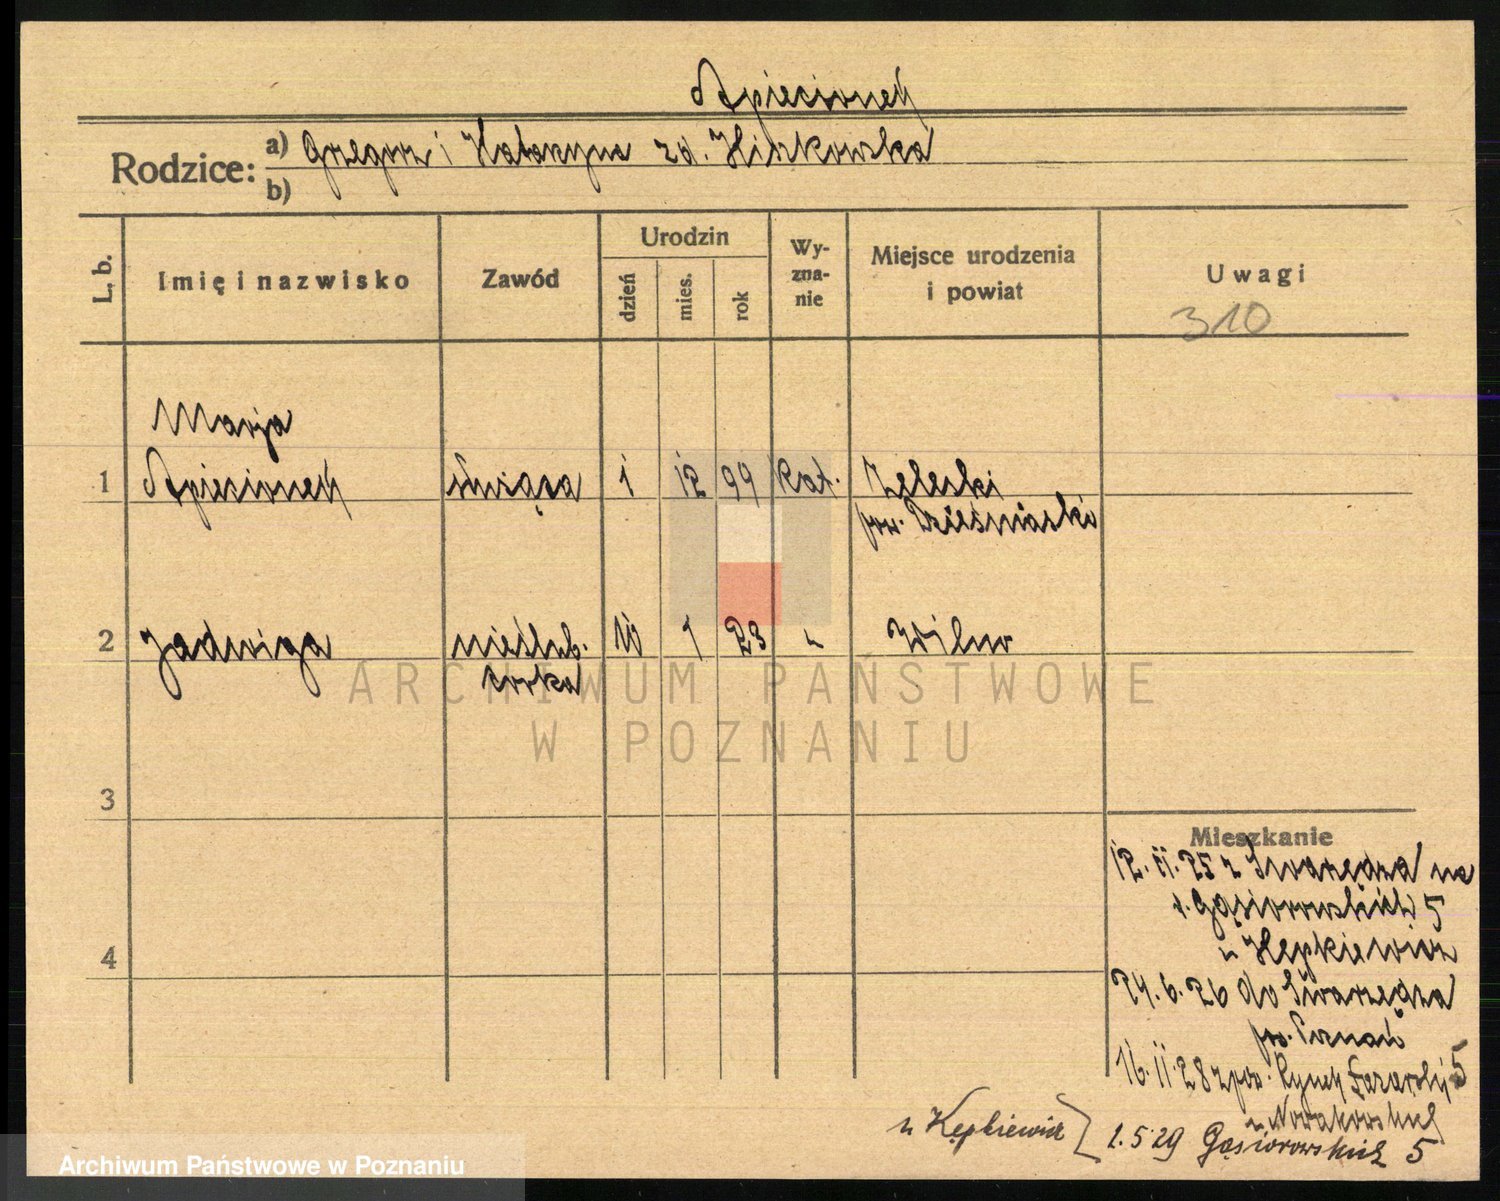 Apiecionek
Rodzice: a) Grzegorz i Katarzyna zd. Hiszkowska
b)
L. b. Imię i nazwisko Zawód Urodzin dzień mies. rok Wyznanie Miejsce urodzenia i powiat Uwagi
310
Marja
1 Apiecionek służąca 1 12 99 kat. Zeleski
pow. Dziśnieński
2 Jadwiga nieślub. 10 1 23 " Wilno
córka
ARCHIWUM PAŃSTWOWE
W POZNANIU
3
Mieszkanie
12.11.25 z Swarzędza na
Gąsiorowskich 5
u Kępkiewicz
4
24.6.26 do Swarzędza
pow. Poznań
16.11.28 z pow. Rynek Łazarski 5
u Nowakowskich
u Kępkiewicz 1.5.29 Gąsiorowskich 5
Archiwum Państwowe w Poznaniu